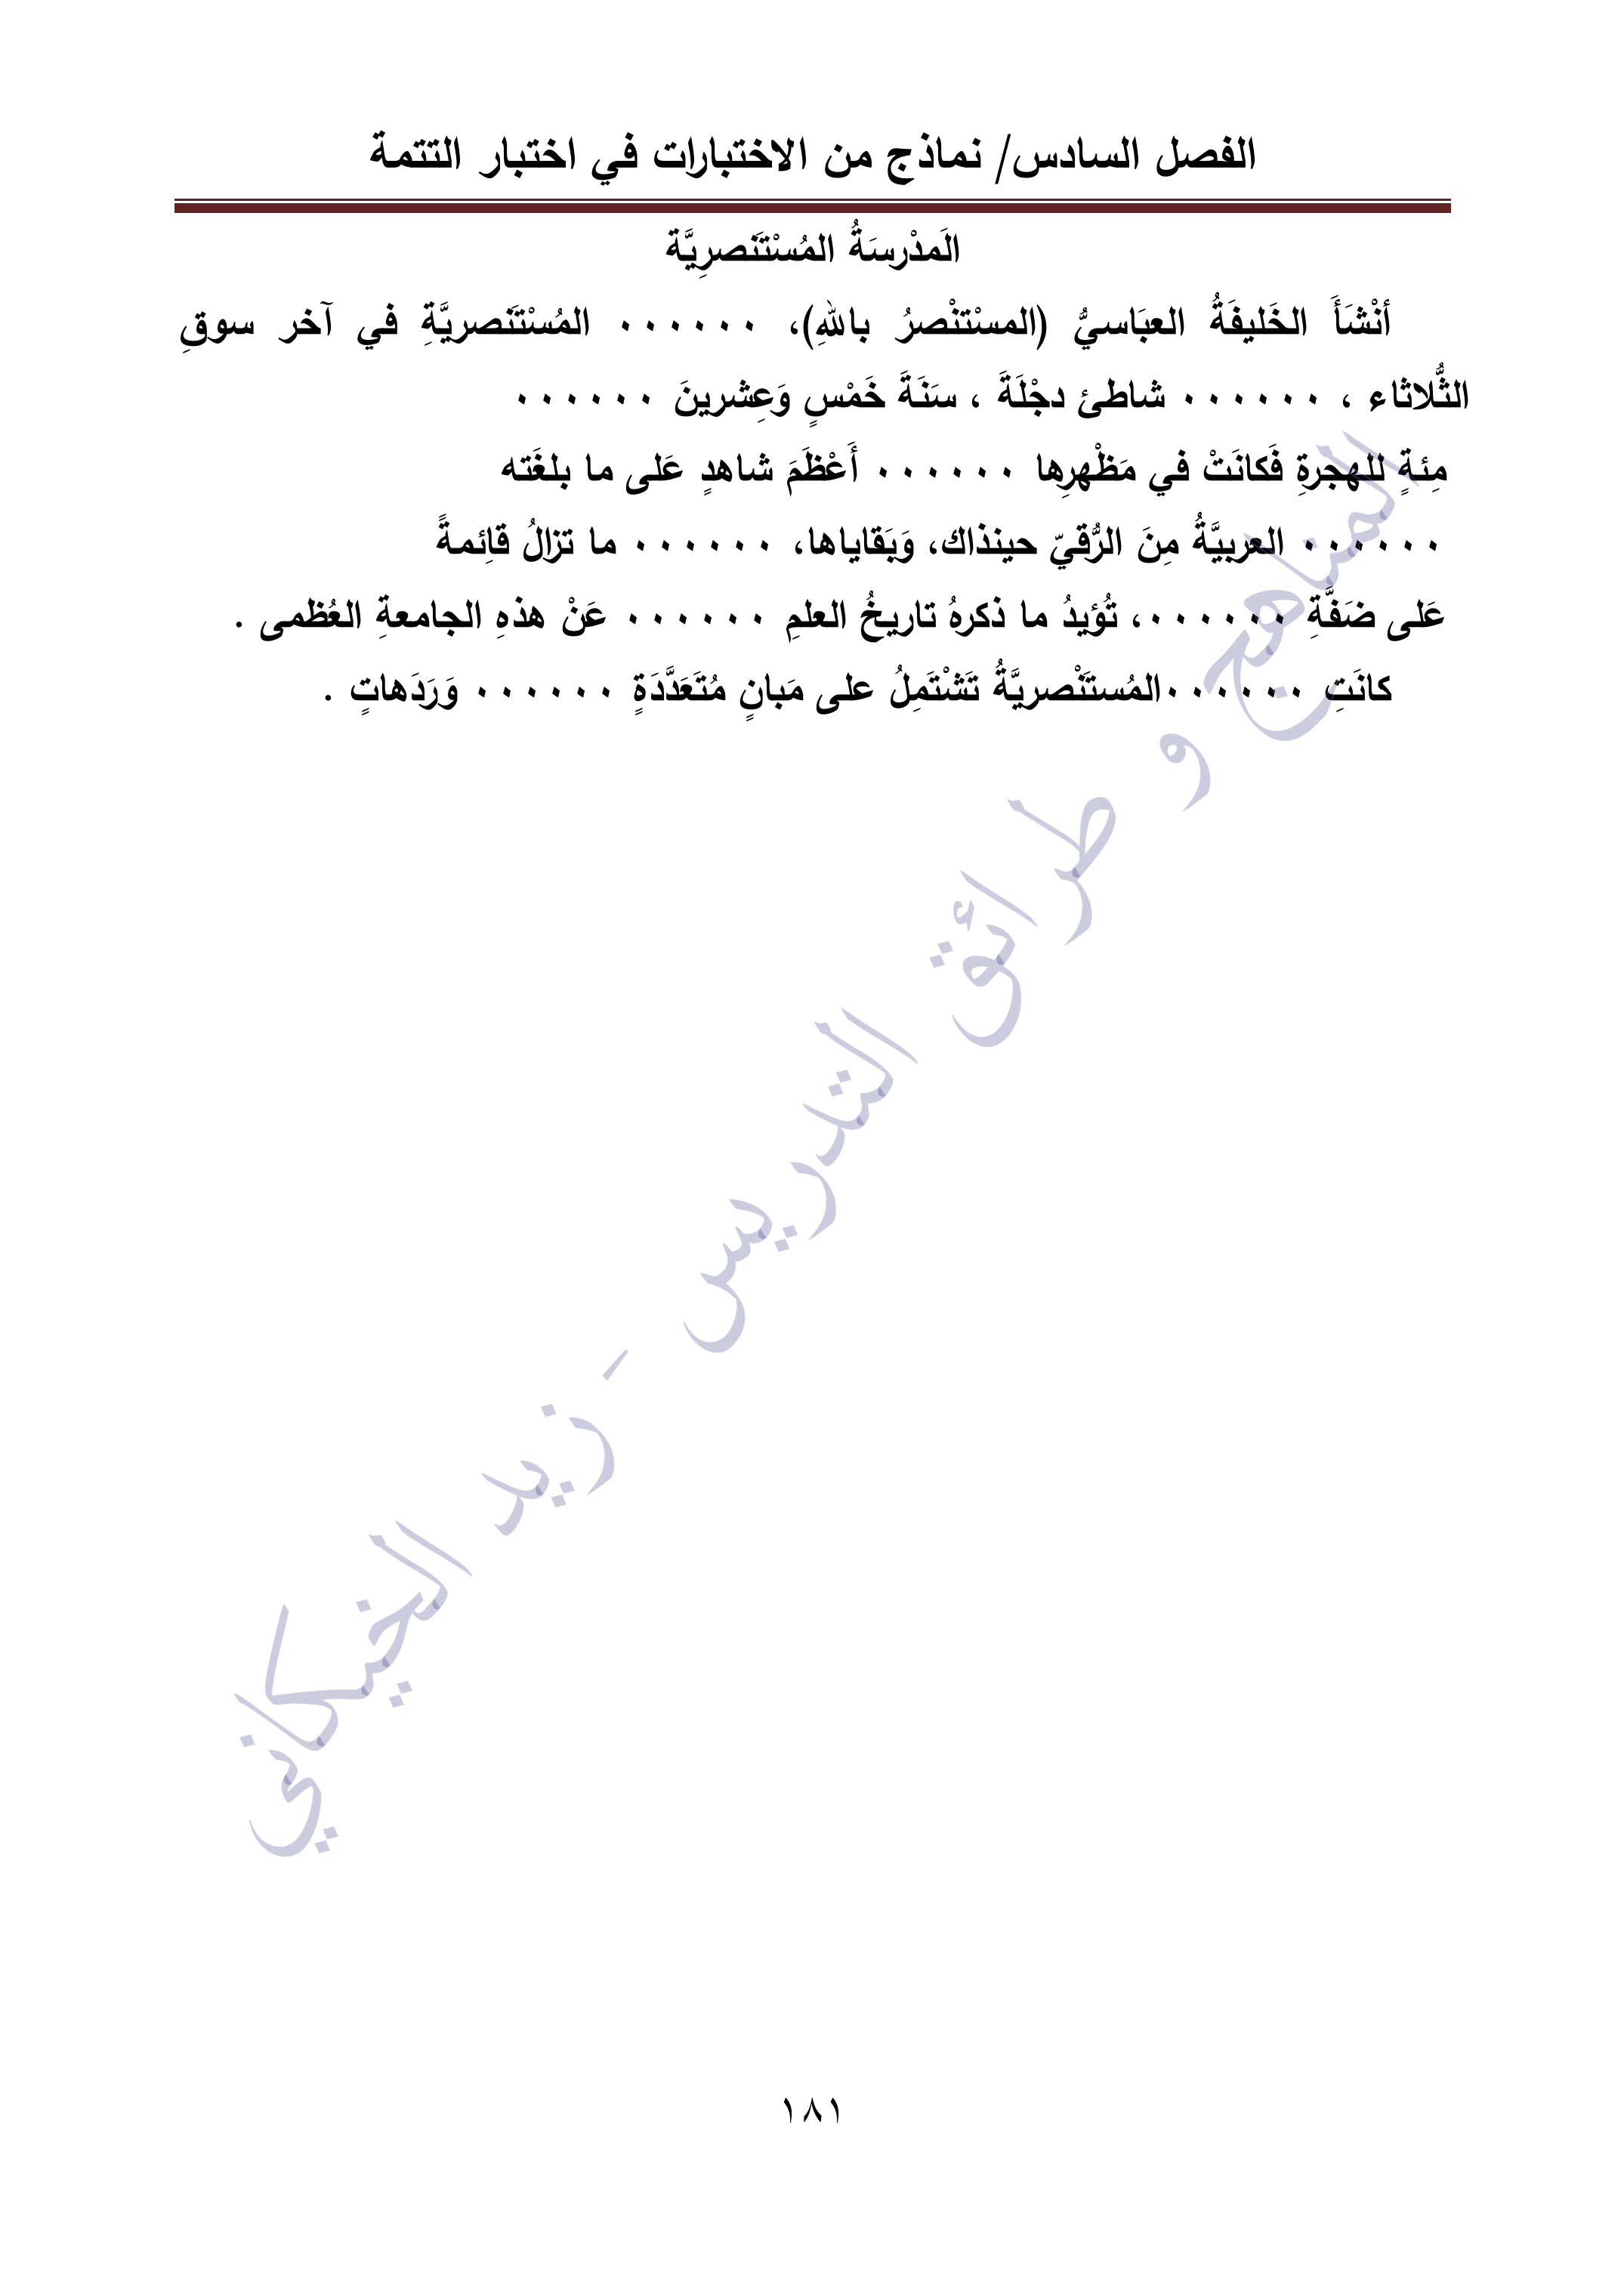 الفصل السادس/ نماذج من الاختبارات في اختبار التتمة
الَمدْرسَةُ المُسْتَنصرِيَّة
أنْشَأَ الخَليفَةُ العبَاسيُّ (المسْتنْصرُ باللهِ)، ٠٠٠٠٠٠ المُسْتَنصريَّةِ في آخر سوقِ
الثُّلاثاء ، ٠٠٠٠٠٠ شاطئ دجْلَةَ ، سَنَةَ خَمْسٍ وَعِشرينَ ٠٠٠٠٠٠
مِئةٍ للهجرةِ فَكانَتْ في مَظْهرِها ٠٠٠٠٠٠ أَعْظَمَ شاهدٍ عَلى ما بلغَته
٠٠٠٠٠٠ العربيَّةُ مِنَ الرُّقيّ حينذاك، وَبَقاياها، ٠٠٠٠٠٠ ما تزالُ قائِمةً
عَلى ضَفَّةِ ٠٠٠٠٠٠، تُؤيدُ ما ذكرهُ تاريخُ العلمِ ٠٠٠٠٠٠ عَنْ هذهِ الجامعةِ العُظمى .
كانَتِ ٠٠٠٠٠٠المُستَنْصريَّةُ تَشْتَمِلُ على مَبانٍ مُتَعَدَّدَةٍ ٠٠٠٠٠٠ وَرَدَهاتٍ .
المناهج و طرائق التدريس - زيد الخيكاني
١٨١